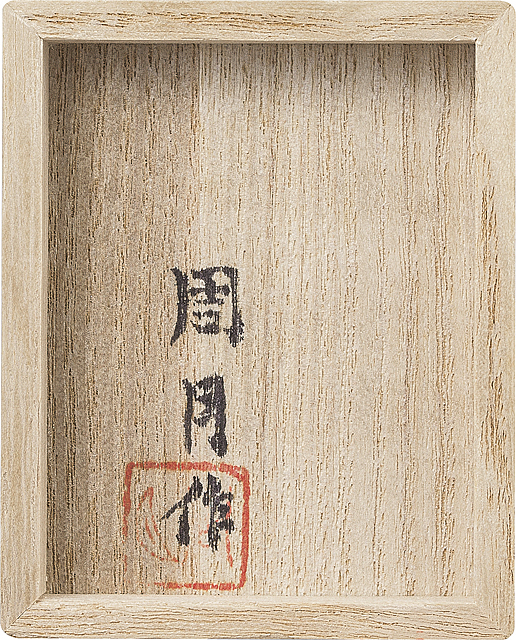 周月作